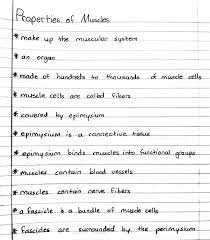 Properties of Muscles
* make up the muscular system
* an organ
* made of hundreds to thousands of muscle cells
* muscle cells are called fibers
* covered by epimysium
* epimysium is a connective tissue
* epimysium binds muscles into functional groups
* muscles contain blood vessels
* muscles contain nerve fibers
* a fascicle is a bundle of muscle cells
* fascicles are surrounded by the perimysium